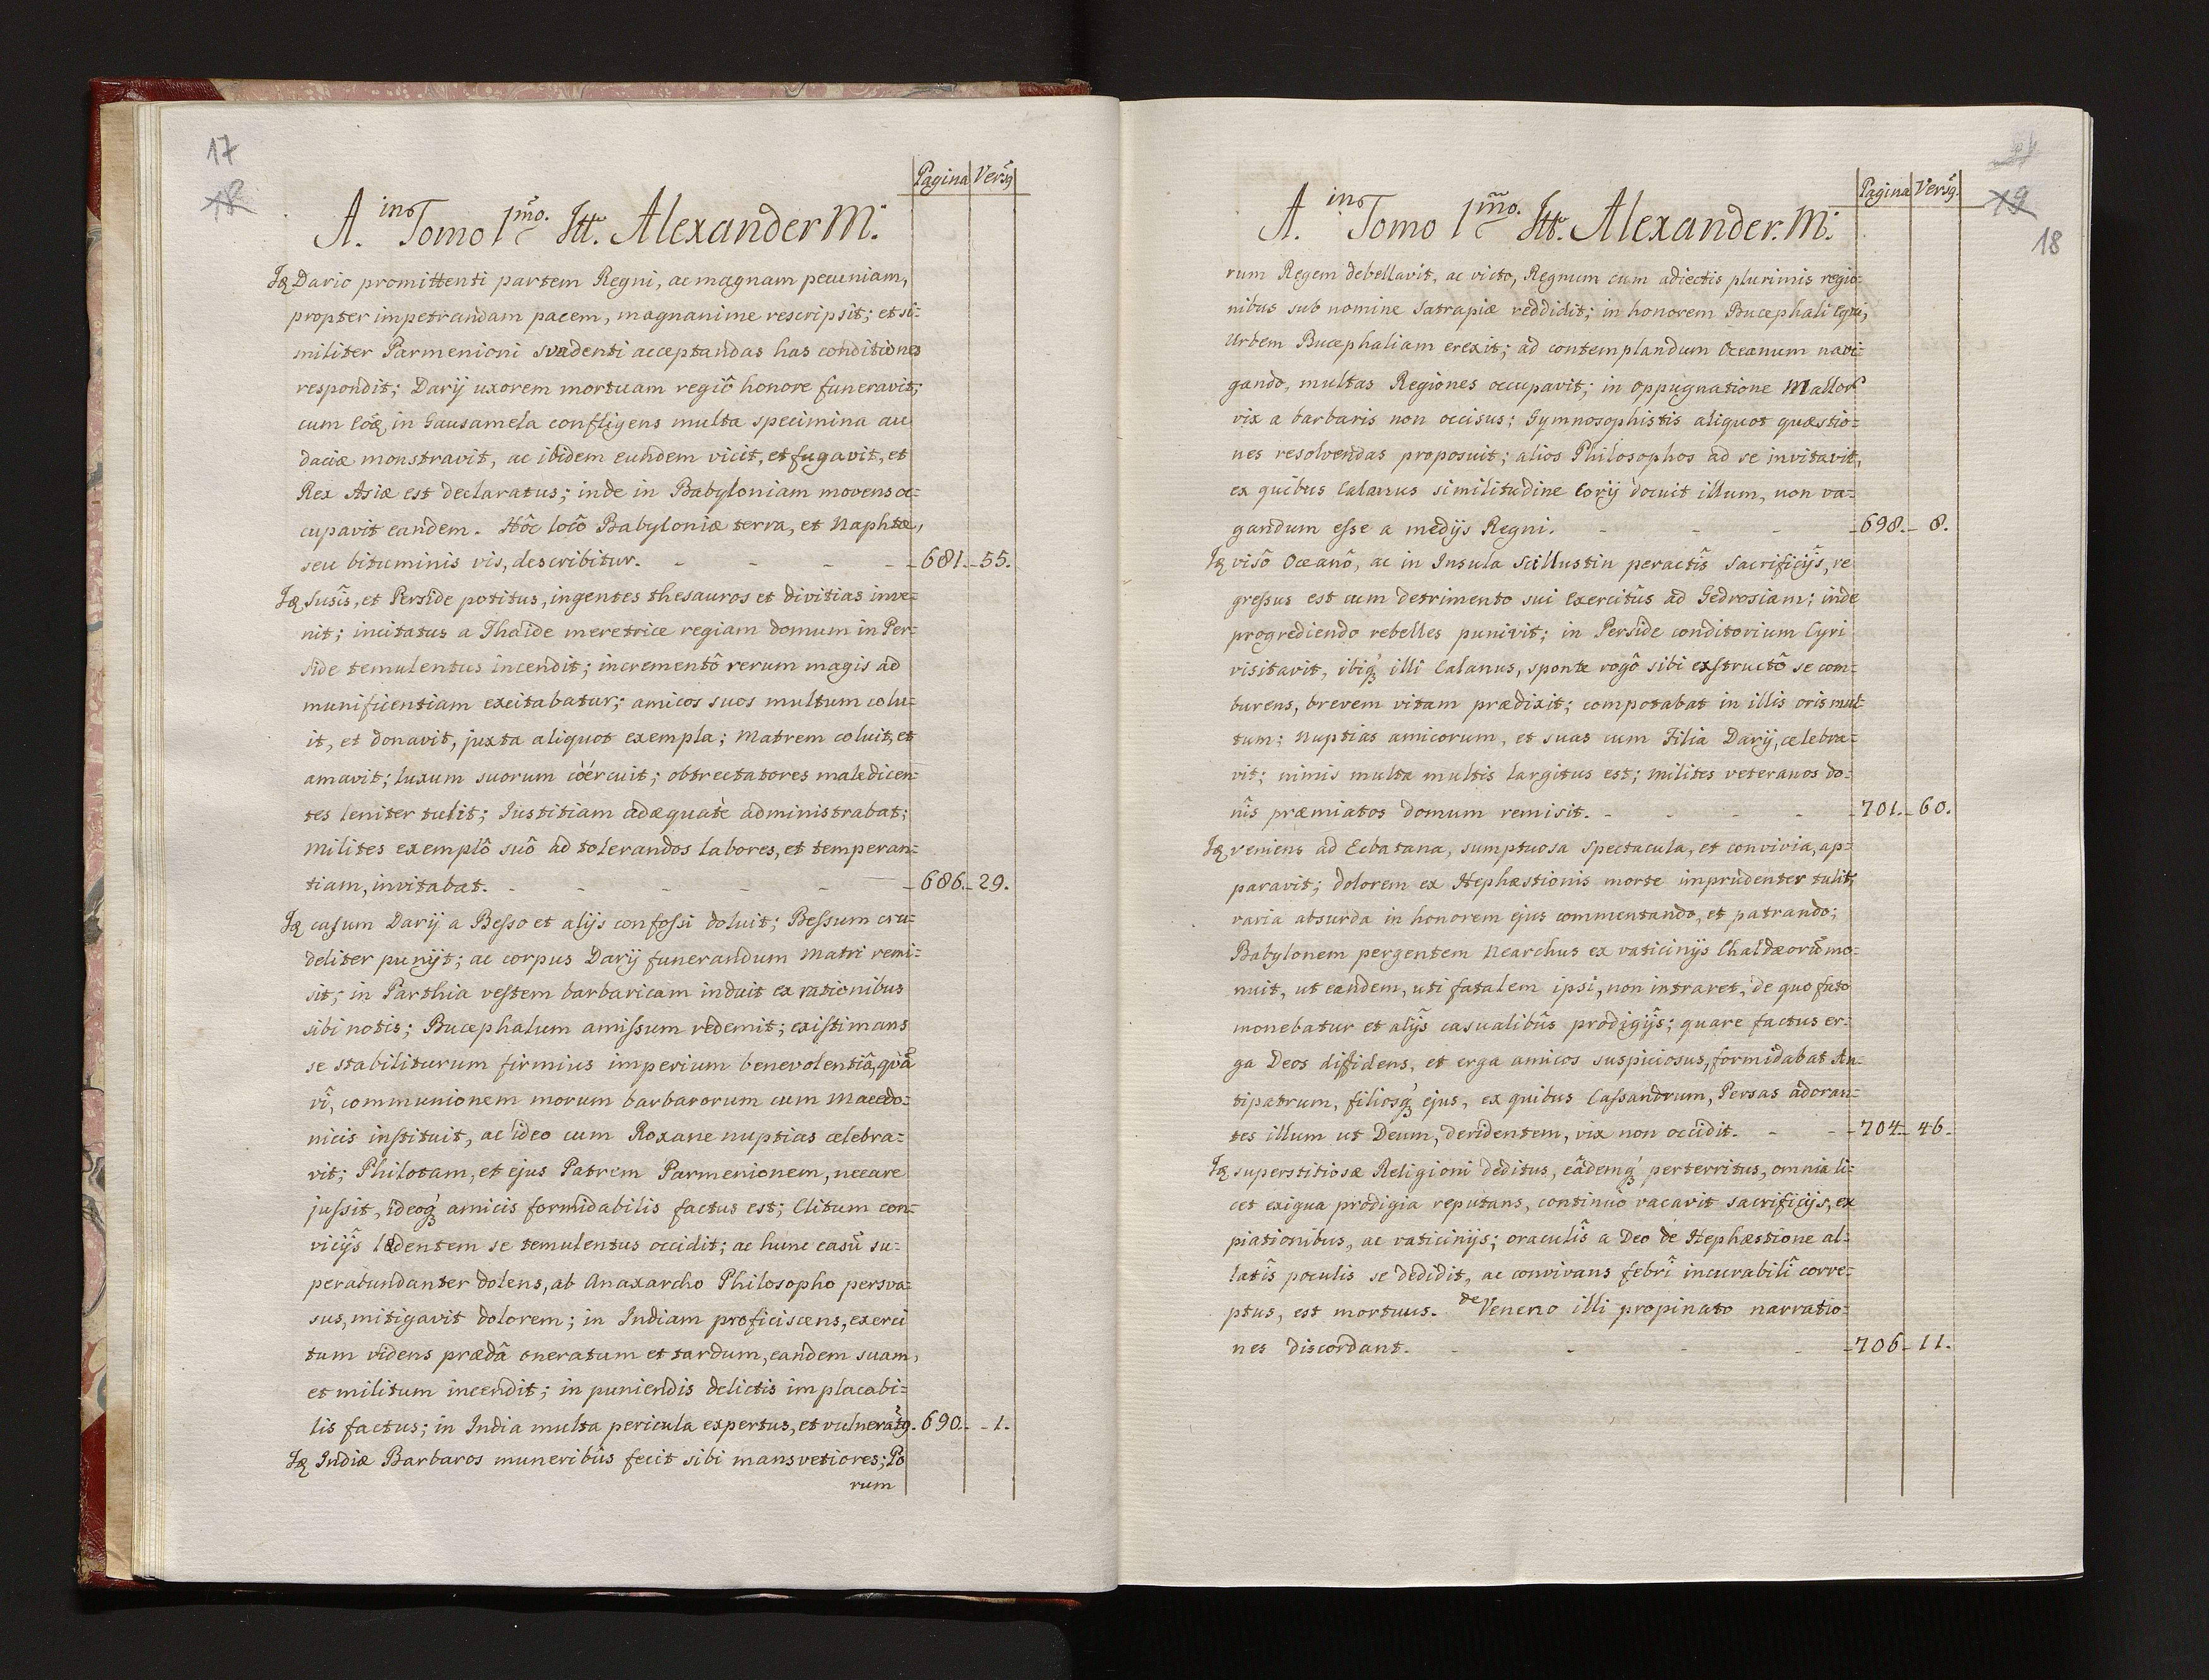 17
18
Pagina Versq
A. in Tomo 1mo. Itt. Alexander M:
Iq Dario promittenti partem Regni, ac magnam pecuniam,
propter impetrandam pacem, magnanime rescripsit; et si=
militer Parmenioni svadenti acceptandas has conditiones
respondit; Darij uxorem mortuam regiô honore funeravit;
cum eóq in Gausamela confligens multa specimina au
daciæ monstravit, ac ibidem eundem vicit, et fugavit, et
Rex Asiæ est declaratus; inde in Babyloniam movens oc=
cupavit eandem. Hôc locô Babyloniæ terra, et Naphtæ,
seu bituminis vis, describitur. - - - - 681. - 55.
Iq Susîs, et Perside potitus, ingentes thesauros et divitias inve=
nit; incitatus a Thaide meretrice regiam domum in Per=
side temulentus incendit; incrementô rerum magis ad
munificentiam excitabatur; amicos suos multum colu=
it, et donavit, juxta aliquot exempla; Matrem coluit, et
amavit; luxum suorum cöércuit; obtrectatores maledicen=
tes leniter tulit; Iustitiam adæquatè administrabat;
milites exemplô suô ad tolerandos labores, et temperan=
tiam, invitabat. - - - - - 686. - 29.
Iq casum Darij a Besso et alijs confossi doluit; Bessum cru=
deliter punijt; ac corpus Darij funerandum Matri remi=
sit; in Parthia vestem barbaricam induit ex rationibus
sibi notis; Bucephalum amissum redemit; existimans
se stabiliturum firmius imperium benevolentiâ, quã
vî, communionem morum barbarorum cum Macedo=
nicis instituit, ac ideo cum Roxane nuptias celebra=
vit; Philotam, et ejus Patrem Parmenionem, necare
jussit, ideoq́ amicis formidabilis factus est; Clitum con=
vicijs lædentem se temulentus occidit; ac hunc casũ su=
perabundanter dolens, ab Anaxarcho Philosopho persva=
sus, mitigavit dolorem; in Indiam proficiscens, exerci
tum videns prædâ oneratum et tardum, eandem suam,
et militum incendit; in puniendis delictis implacabi=
lis factus; in India multa pericula expertus, et vulneratq. - 690. - 1.
Iq Indiæ Barbaros muneribûs fecit sibi mansvetiores; Po
rum
19
18
Pagina Versq.
A. in Tomo 1mo. Itt. Alexander. M:
rum Regem debellavit, ac victo, Regnum cum adiectis plurimis regio=
nibus sub nomine Satrapiæ reddidit; in honorem Bucephali Equi,
Urbem Bucephaliam erexit; ad contemplandum Oceanum navi=
gando, multas Regiones occupavit; in oppugnatione Mallor
vix a barbaris non occisus; Gymnosophistis aliquot quæstio=
nes resolvendas proposuit; alios Philosophos ad se invitavit,
ex quibus Calanus similitudine Corij docuit illum, non va=
gandum esse a medijs Regni. - - - - 698. - 8.
Iq visô Oceanô, ac in Insula Scillustin peractîs Sacrificijs, re
gressus est cum detrimento sui Exercitûs ad Gedrosiam; inde
progrediendo rebelles punivit; in Perside conditorium Cyri
visitavit, ibiq́ illi Calanus, sponte rogô sibi exstructô se com=
burens, brevem vitam prædixit; compotabat in illis oris mul=
tum; Nuptias amicorum, et suas cum Filia Darij, celebra=
vit; nimis multa multis largitus est; milites veteranos do=
nîs præmiatos domum remisit. - - - - 701. - 60.
Iq veniens ad Ecbatana, sumptuosa spectacula, et convivia, ap=
paravit; dolorem ex Hephæstionis morte imprudenter tulit,
varia absurda in honorem ejus commentando, et patrando;
Babylonem pergentem Nearchus ex vaticinijs Chaldæorũ mo=
nuit, ut eandem, uti fatalem ipsi, non intraret, de quo fato
monebatur et alijs casualibûs prodigijs; quare factus er=
ga Deos diffidens, et erga amicos suspiciosus, formidabat An=
tipatrum, filiosq́ ejus, ex quibus Cassandrum, Persas adoran=
tes illum ut Deum, deridentem, vix non occidit. - - 704. - 46.
Iq superstitiosæ Religioni deditus, eâdemq́ perterritus, omnia li=
cet exigua prodigia reputans, continuò vacavit sacrificijs, ex
piationibus, ac vaticinijs; oraculîs a Deo de Hephæstione al=
latîs poculis se dedidit, ac convivans febrî incurabilî corre=
ptus, est mortuus. de Veneno illi propinato narratio=
nes discordant. - - - - 706 - 11.